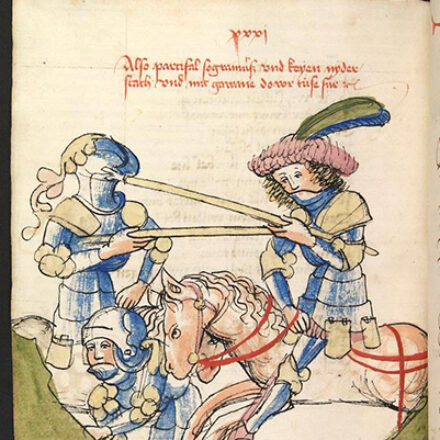 xxxi
Also partifal segramurß vnd keyen nyder
stach vnd mit gawane do vor